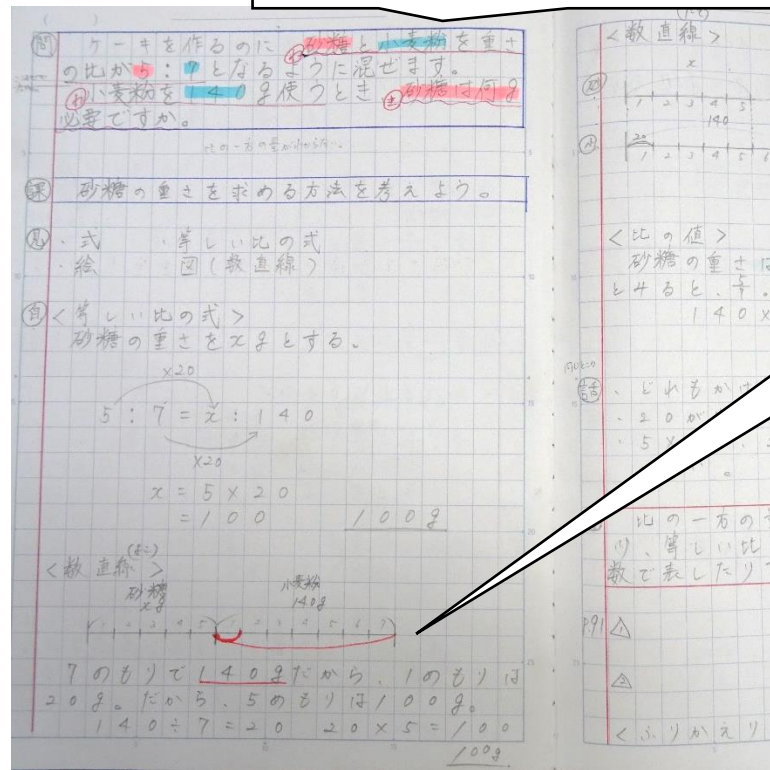 問 ケーキを作るのに砂糖と小麦粉を重さ
の比が5:7となるように混ぜます。
小麦粉を140g使うとき砂糖は何g
必要ですか。
比の一方の量がわからない。
課 砂糖の重さを求める方法を考えよう。
見 ・式 ・等しい比の式
・絵 図(数直線)
自 <等しい比の式>
砂糖の重さをxgとする。
×20
5:7=x:140
×20
x=5×20
=100 100g
(よこ)
<数直線>
砂糖 小麦粉
xg 140g
1 2 3 4 5 1 2 3 4 5 6 7
7のもりで140gだから、1めもりは
20g。だから、5めもりは100g。
140÷7=20 20×5=100
100g
<数直線>
x
1 2 3 4 5
140
20
1 2 3 4 5 6
<比の値>
砂糖の重さは
とすると、5/7。
140×
話 ・どれもかけ
・20が
・5×
比の一方の
り、等しい比
数で表したり
P.91 1
2
<ふりかえり